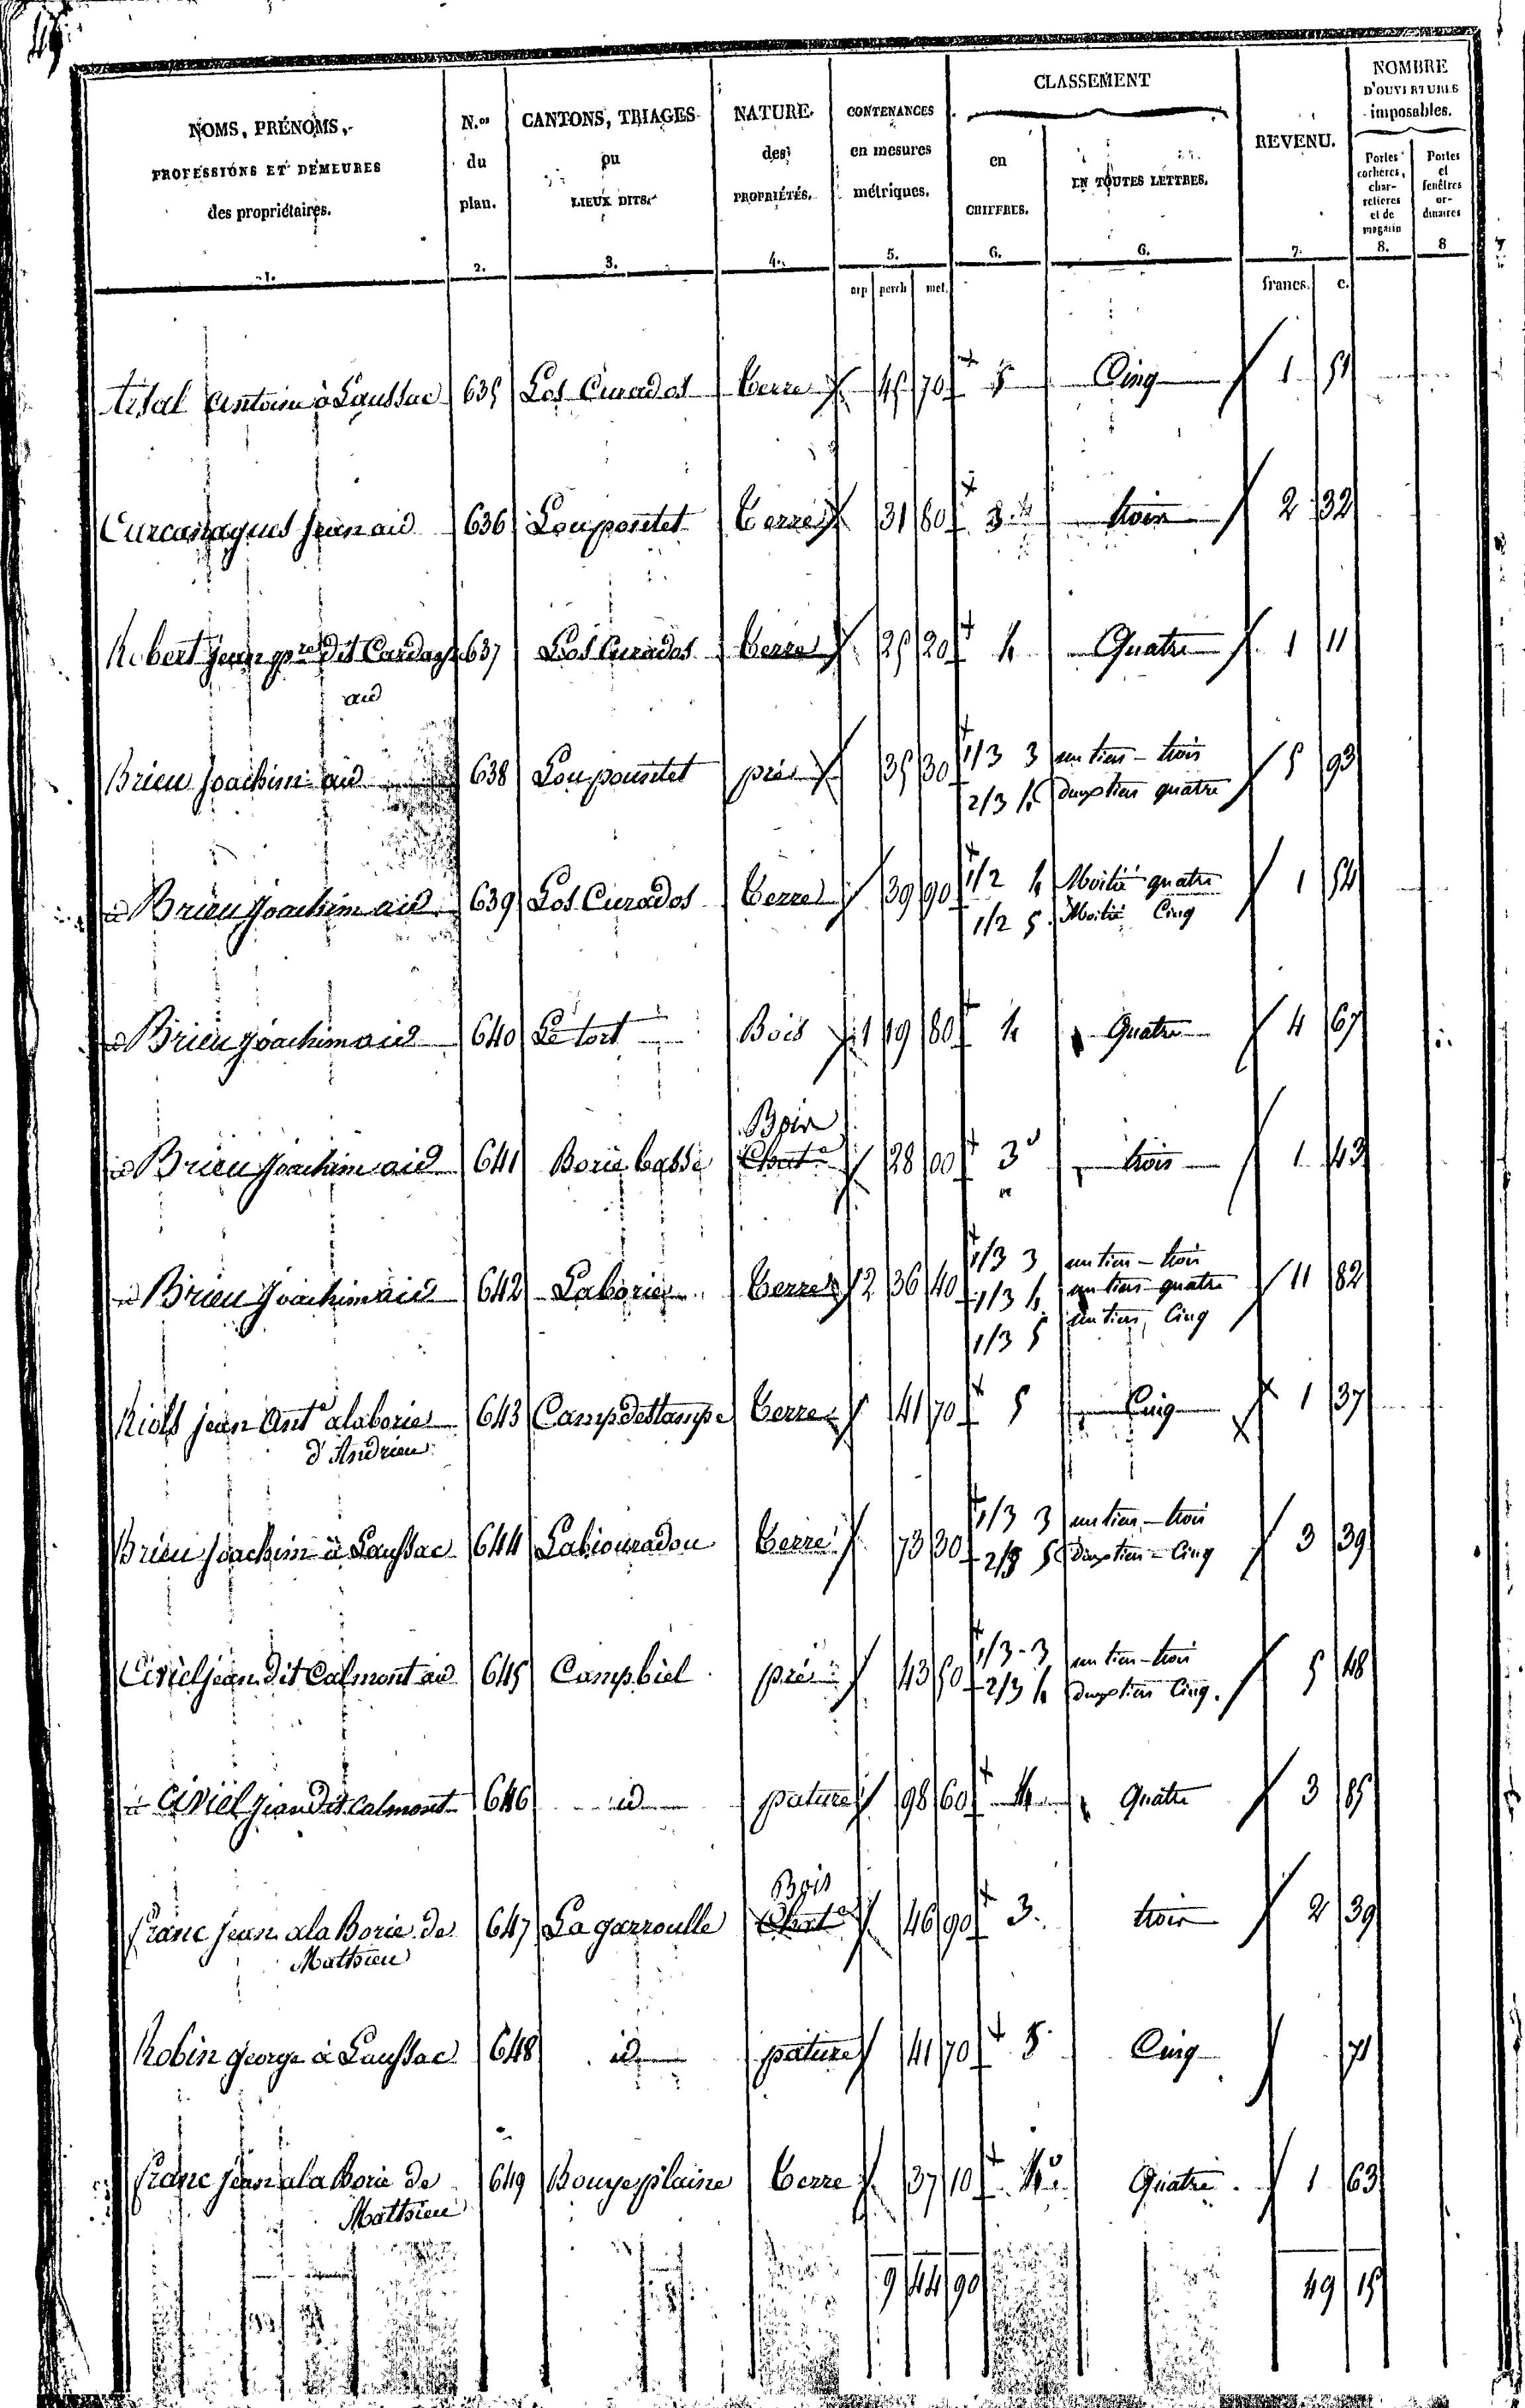 49.
NOMS, PRÉNOMS, PROFESSIONS ET DEMEURES des propriétaires. N.os du plan. CANTONS, TRIAGES ou LIEUX DITS. NATURE des PROPRIÉTÉS. CONTENANCES en mesures métriques. CLASSEMENT en CHIFFRES. EN TOUTES LETTRES. REVENU. NOMBRE D'OUVERTURES imposables. Portes cochères, charretières et de magasin Portes et fenêtres ordinaires
1. 2. 3. 4. 5. 6. 6. 7. 8. 8
arp perch met. francs. c.
antoine à Laussac 635 Los Curados terre 45 70 5 Cinq 1 51
Jean aid 636 Loupoustet terre 31 80 3 trois 2 32
Robert Jean dit 637 Los Curados terre 25 20 4 Quatre 1 11
aid
Brieu Joachim aid 638 Loupoustet pré 35 30 1/3 3 un tiers - trois 5 93
2/3 4 deux tiers quatre
Brieu Joachim aid 639 Los Curados terre 39 90 1/2 4 Moitié quatre 1 54
1/2 5 Moitié Cinq
Brieu Joachim aid 640 Le tort Bois 1 19 80 4 Quatre 4 67
Bois
Brieu Joachim aid 641 Borie basse Chat 28 00 3 trois 1 43
Brieu Joachim aid 642 Laborie terre 2 36 40 1/3 3 un tiers - trois 11 82
1/3 4 un tiers quatre
1/3 5 un tiers, Cinq
Riols jean Ant alaborie 643 Camp destampe terre 41 70 5 Cinq 1 37
d'Andrieu
Brieu Joachim à Laussac 644 Labiouradou terre 73 30 1/3 3 un tiers - trois 3 39
2/3 5 deux tiers - Cinq
Civiel jean dit Calmont aid 645 Campbiel pré 43 50 1/3 - 3 un tiers - trois 5 48
2/3 4 deux tiers Cinq.
Civiel jean dit Calmont 646 id pature 98 60 4 Quatre 3 85
Bois
franc jean ala Borie de 647 La garroulle Chat 46 90 3. trois 2 39
Mathieu
Robin george à Laussac 648 id pature 41 70 5 Cinq 71
franc jean ala Borie de 649 Bouyeplaine terre 37 10 4 Quatre 1 63
Mathieu
9 44 90 49 15